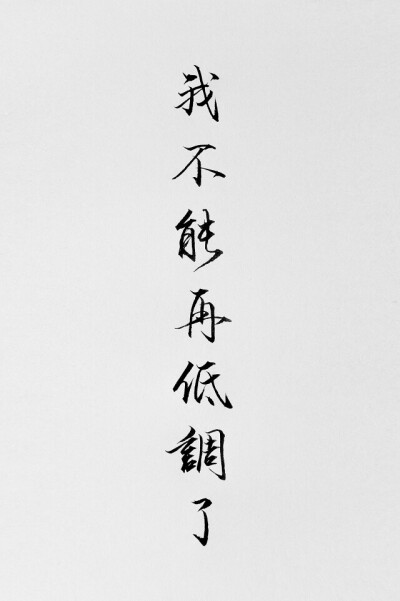 我不能再低調了